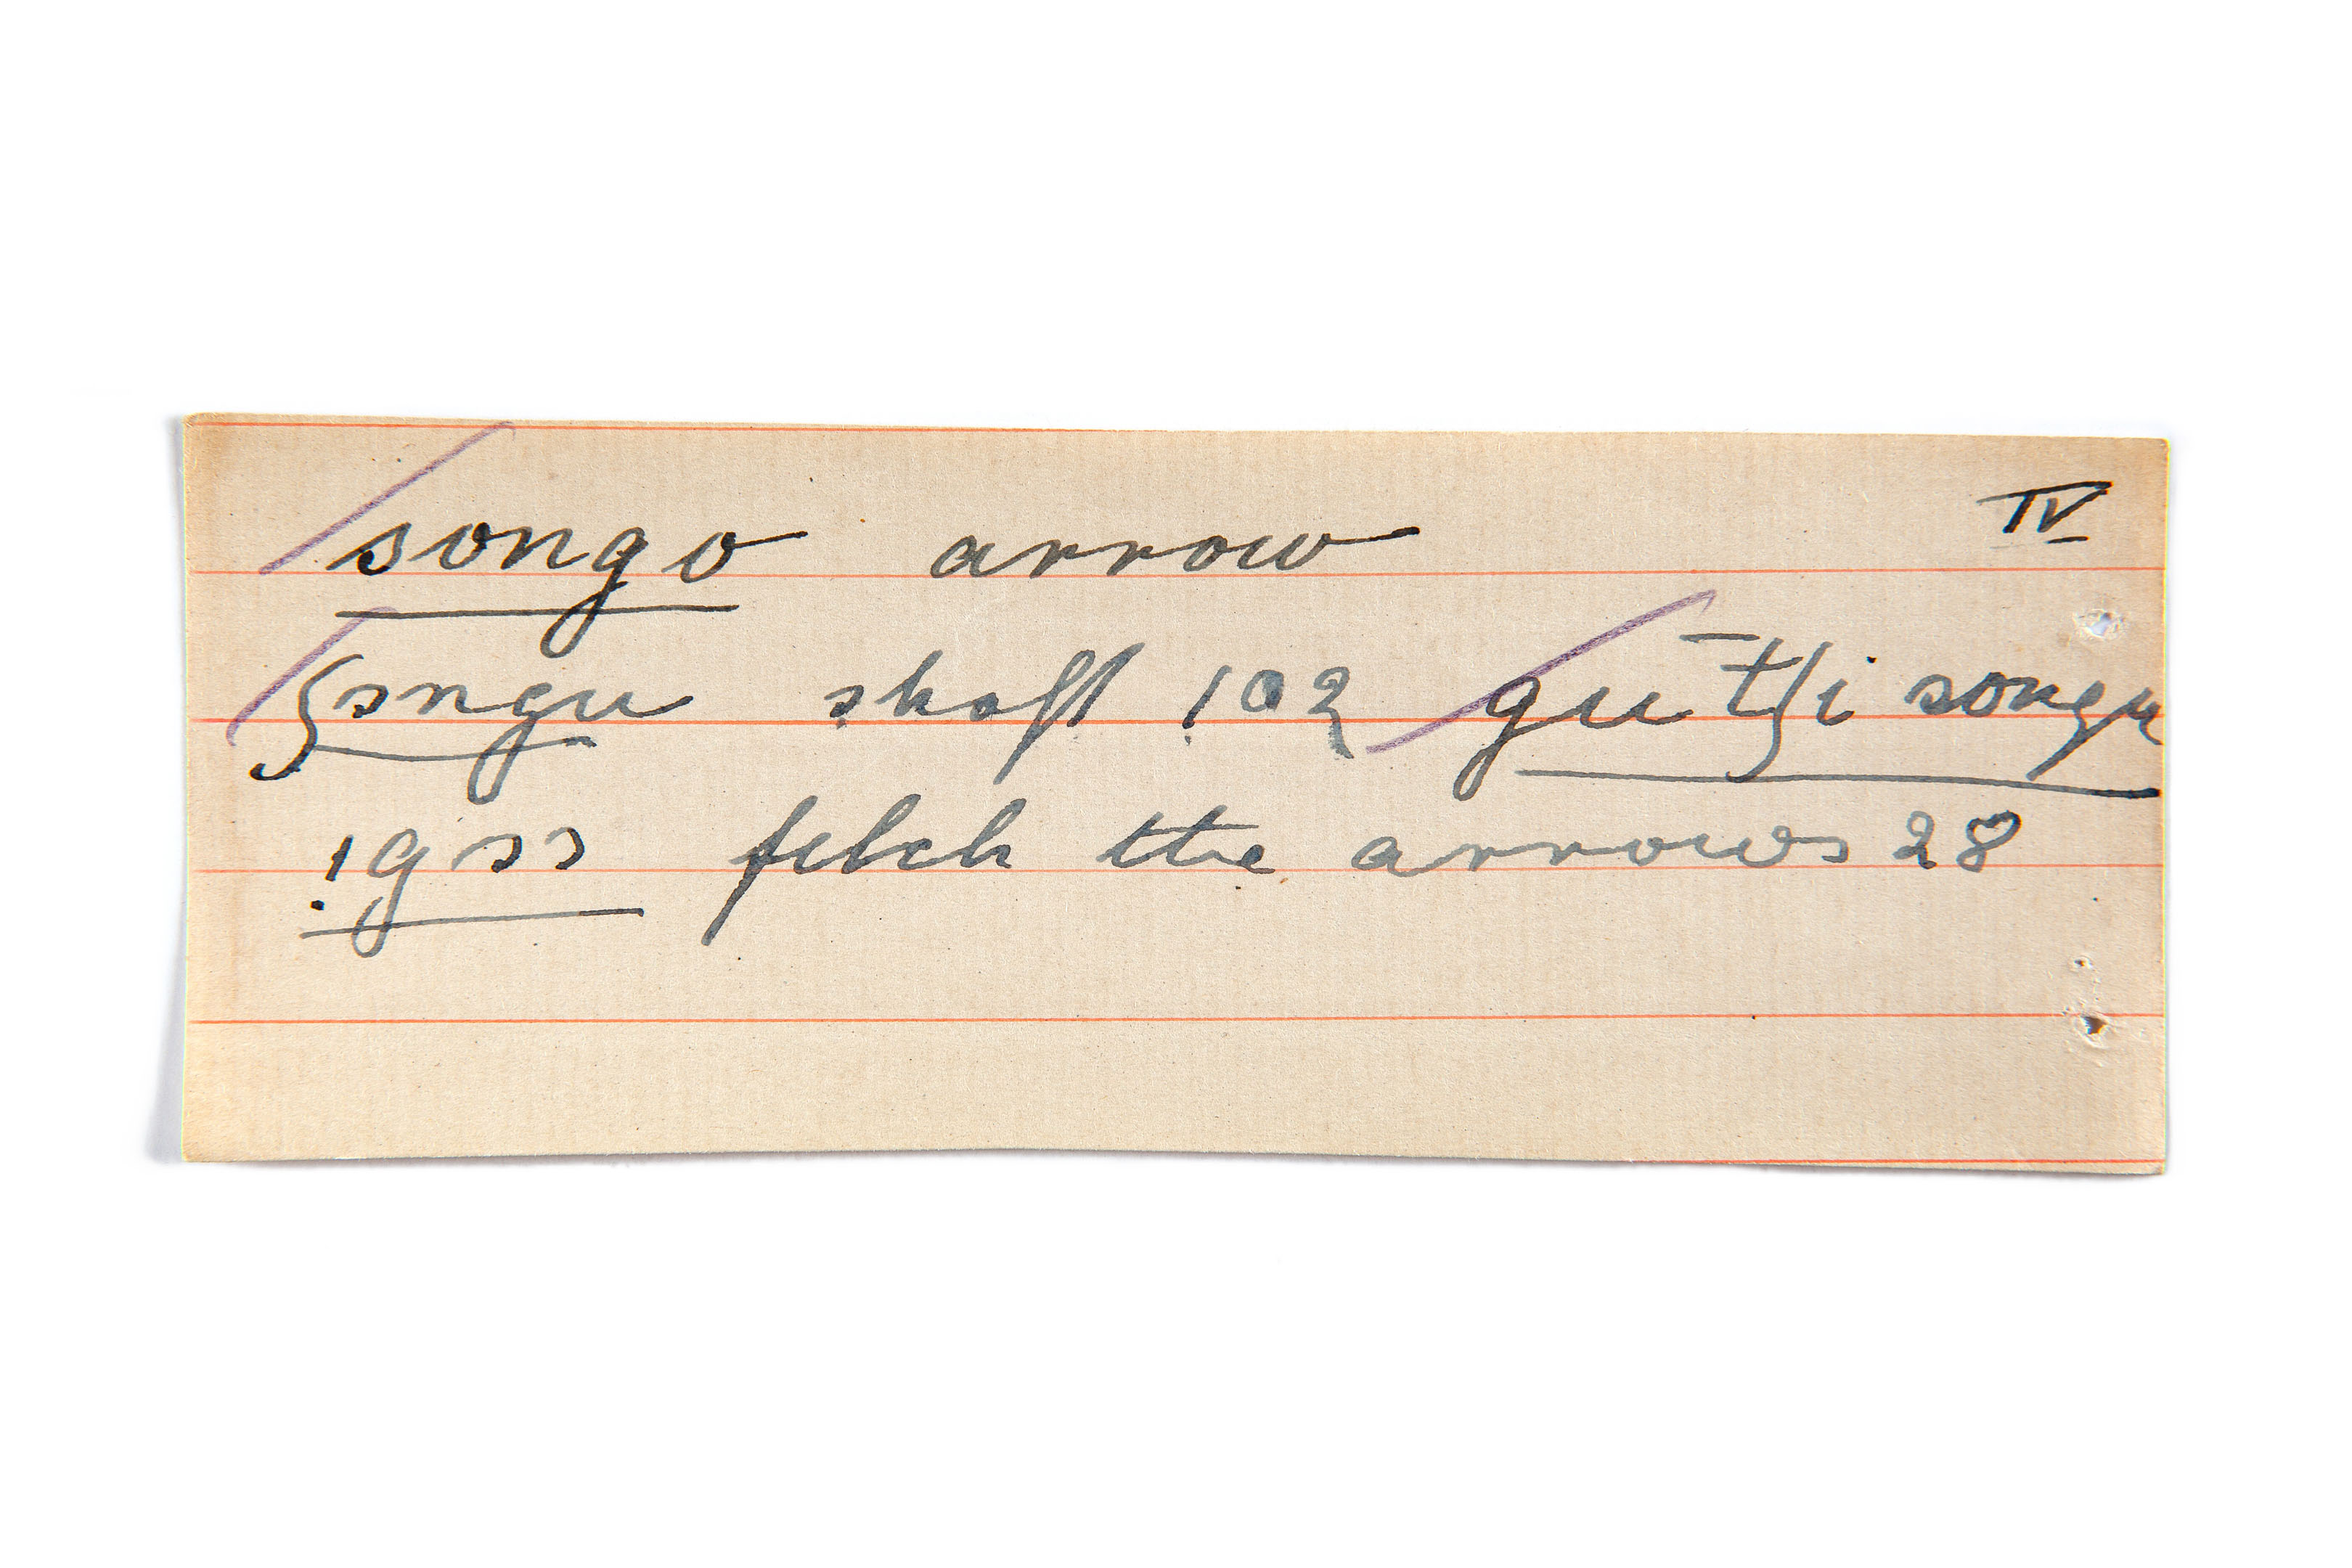 songo arrow IV
ʃɔngu shaft 102 gūtʃi songu
!gɔɔ fetch the arrows 28